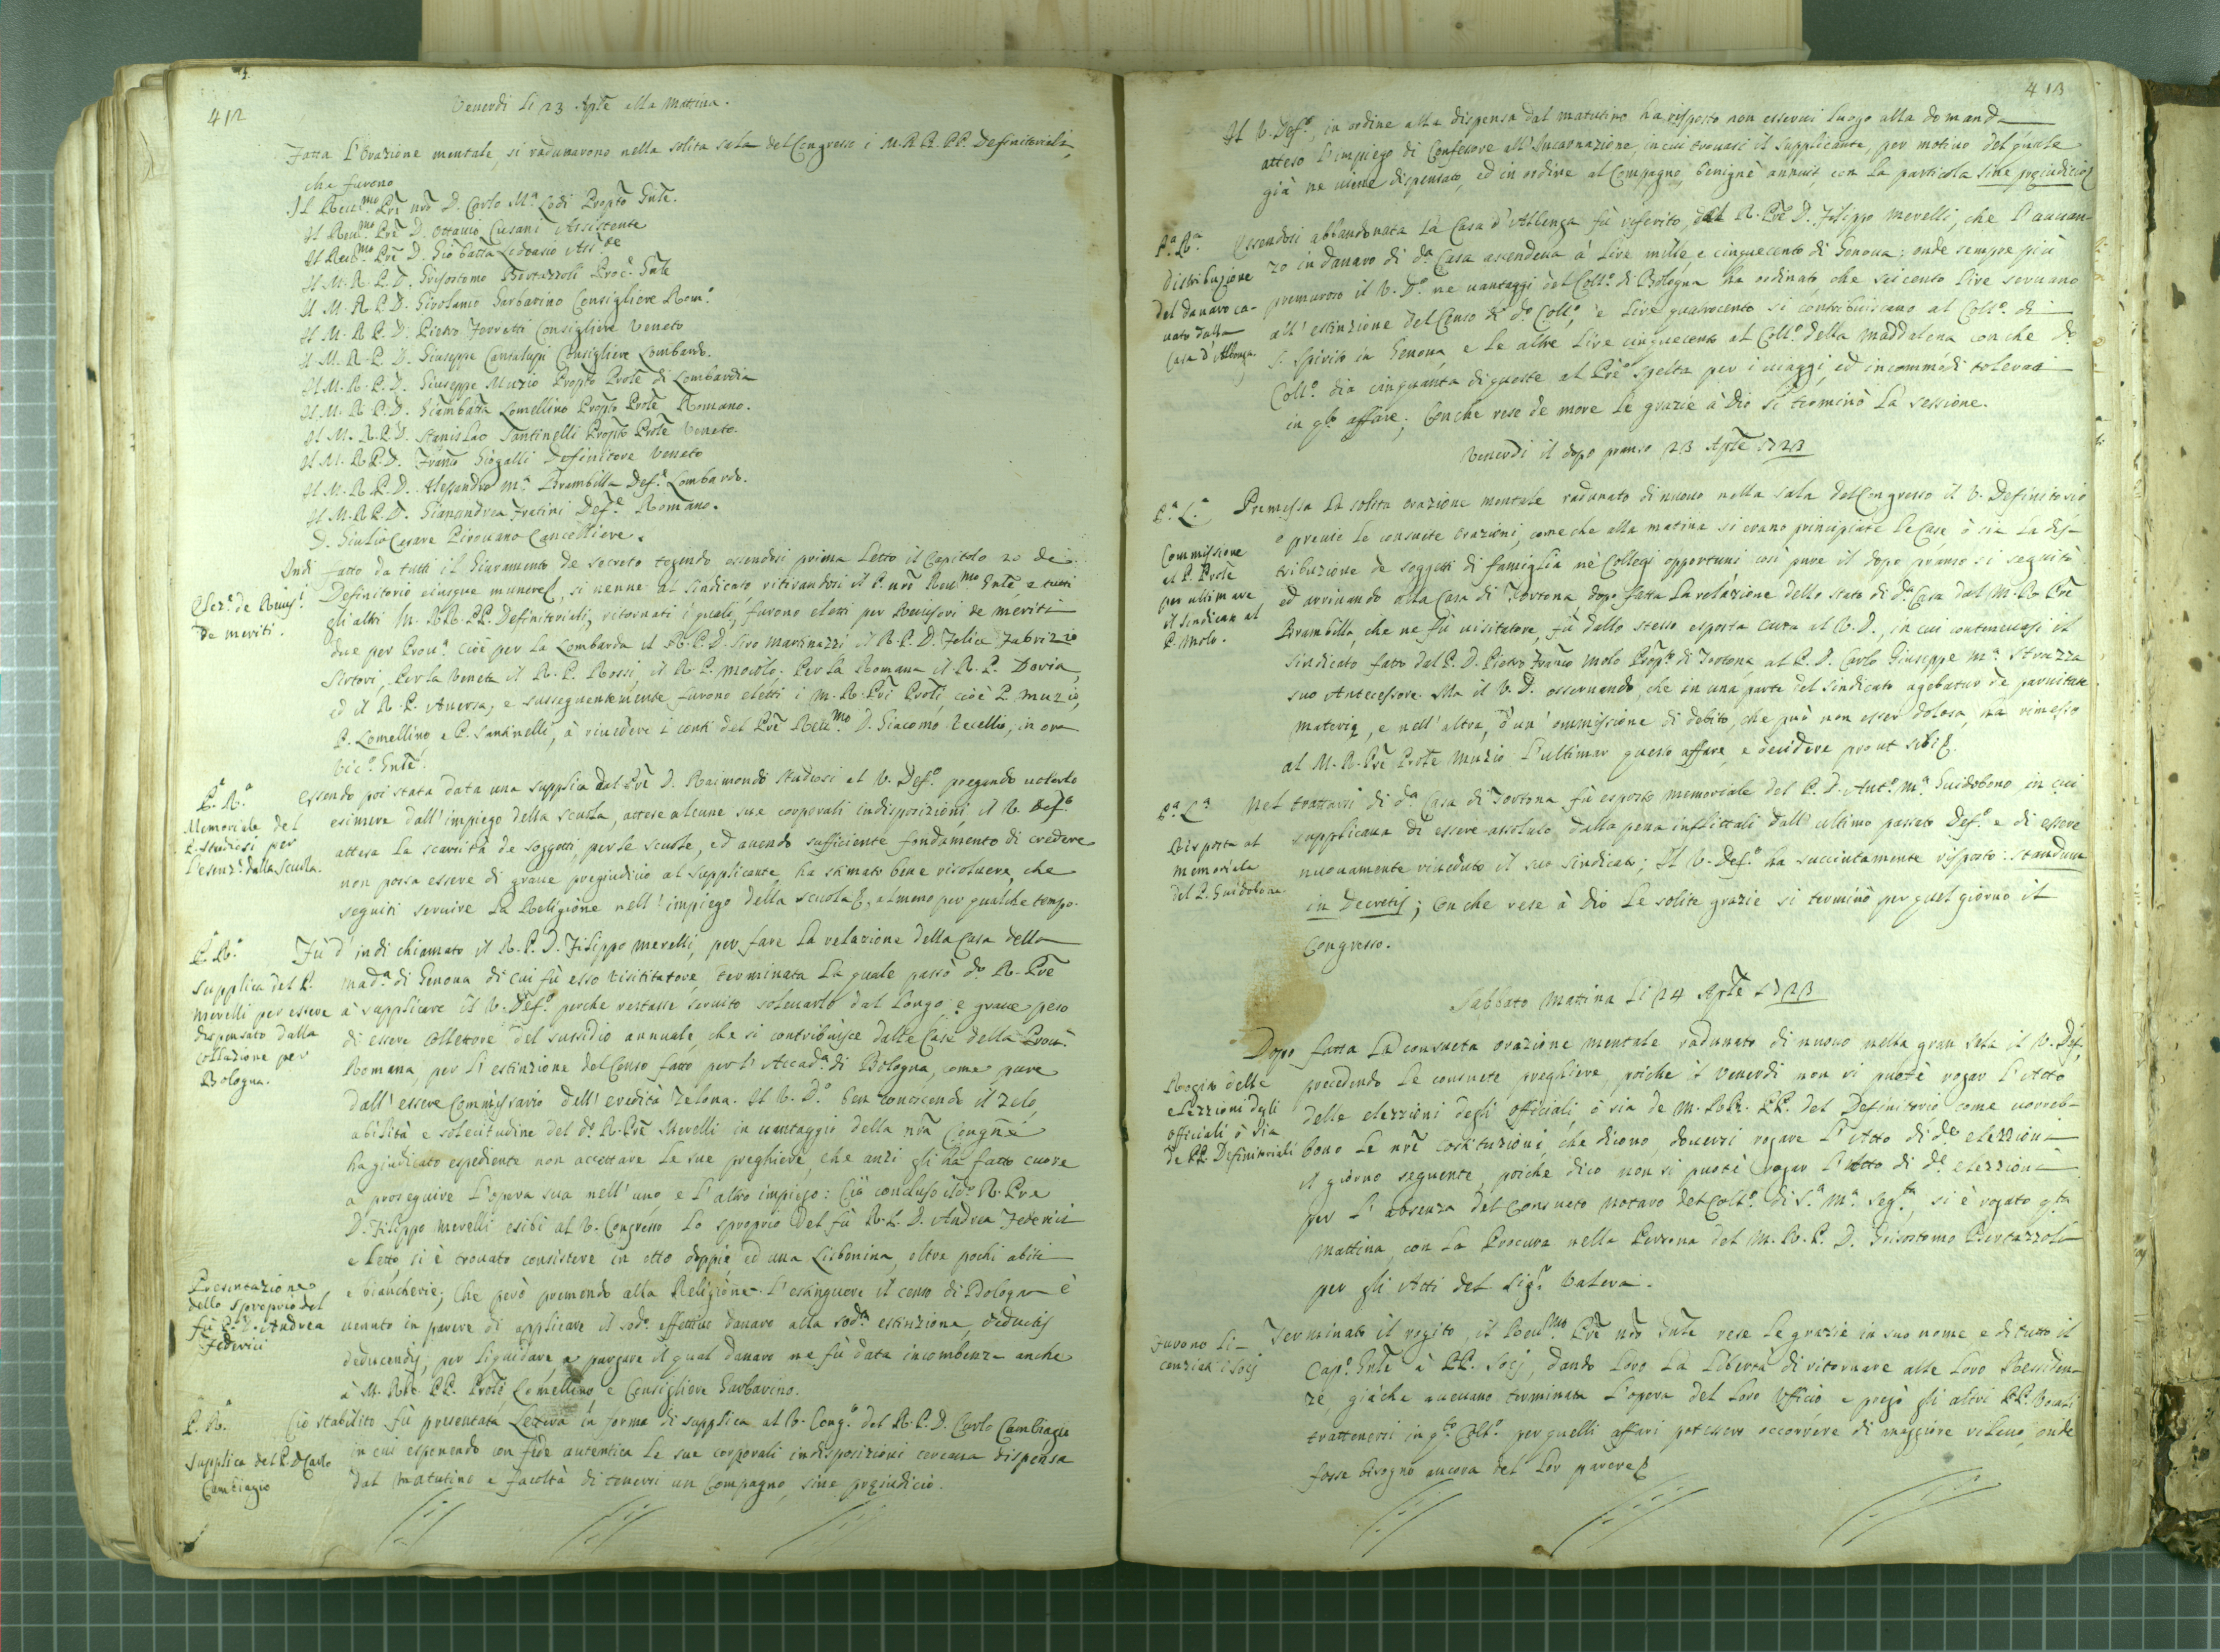 412
Venerdi li 23 Aple alla Mattina.
Fatta l'Orazione mentale, si radunarono nella solita sala del Congresso i M.R.R. PP. Definitoriali,
che furono
Il Reu.mo Pre nro D. Carlo M.a Lodi Propto Gnle.
Il Reu.mo Pre D. Ottauio Cusani Assistente
Il Reu.mo Pre D. Gio batta
Il M. R. P. D. Grisostomo Bertazzoli Proc.r Gnle
Il M. R. P. D. Girolamo Garbarino Consigliere Rom.o
Il M. R. P. D. Pietro Ferretti Consigliere Veneto
Il M. R. P. D. Giuseppe Cantalupi Consigliere Lombardo.
Il M. R. P. D. Giuseppe Muzio Propto Prole di Lombardia
Il M. R. P. D. Giambatta Lomellino Propto Prole Romano.
Il M. R. P. D. Stanislao Santinelli Propto Prole Veneto.
Il M. R. P. D. Franco Giogalli Definitore Veneto
Il M. R. P. D. Alessandro M.a Brambilla Def.e Lombardo.
Il M. R. P. D. Gianandrea Fratini Def.e Romano.
D. Giulio Cesare Pirouano Cancelliere.
Indi fatto da tutti il Giuramento de secreto tegendo essendosi prima letto il Capitolo 20 de
Definitorio eiusque munere, si uenne al Sindicato ritirandosi il P. nro Reu.mo Gnle, e tutti
de meriti.
gli altri M. RR. PP. Definitoriali, ritornati i quali, furono eletti per Reuisori de meriti
due per Prou.a cioè per la Lombarda il R. P. D. Siro Martinazzi il R. P. D. Felice Fabrizio
Sirtori, Per la Veneta il R. P. Rossi, il R. P. Per la Romana il R. P. Doria,
ed il R. P. Auersa, e susseguentemente furono eletti i M. R. Pri Proli, cioè P. Muzio,
P. Lomellino e P. Santinelli, à riuedere i conti del Pre Reu.mo D. Giacomo in ora
Vic.o Gnle.
P.a R.a
Memoriale del
P. Studiosi per
l'esenz.e dalla scuola.
Essendo poi stata data una supplica dal Pre D. Raimondo Studiosi al V. Def.o pregando uolerlo
esimere dall'impiego della scuola, attese alcune sue corporali indisposizioni il V. Def.o
attesa la scarsità de soggetti per le scuole, ed auendo sufficiente fondamento di credere
non possa essere di graue pregiudicio al supplicante, ha stimato bene risoluere, che
seguiti seruire la Religione nell'impiego della scuola, almeno per qualche tempo.
P. R.a
Supplica del P.
Merelli per essere
dispensato dalla
collazione per
Bologna.
Fù d'indi chiamato il R. P. D. Filippo Merelli, per fare la relazione della Casa della
Mad.a di Genoua di cui fù esso Visititatore, terminata la quale passò d.o R. Pre
à supplicare il V. Def.o perche restasse seruito solleuarlo dal longo e graue peso
di essere Collettore del sussidio annuale, che si contribuisce dalle Case della Prou.a
Romana, per l'estinzione del Censo fatto per l'Accad.a di Bologna, come pure
dall'essere Commissario dell'eredità Zelona. Il V. D.o ben conoscendo il zelo,
abilità e solecitudine del d.o R. Pre Merelli in uantaggio della nra Congne
ha giudicato espediente non accettare le sue preghiere, che anzi gli ha fatto cuore
a proseguire l'opera sua nell'uno, e l'altro impiego: Ciò concluso il d.o R. Pre
D. Filippo Merelli esibì al V. Congresso lo sproprio del fù R. P. D. Andrea Federici
e letto, si è trouato consistere in otto doppie, ed una Lisbonina, oltre pochi abiti
Presentazione
dello sproprio del
fù P. D. Andrea
Federici
e biancherie; Che però premendo alla Religione l'estinguere il censo di Bologna è
uenuto in parere di applicare il sod.o effettiuo danaro alla sod.a estinzione, deductis
deducendis, per liquidare e purgare il qual danaro ne fù data incombenza anche
à M. RR. PP. Prole Lomellino, e Consigliere Garbarino.
P. R.a
Supplica del P. D. Carlo
Cambiagio
Ciò stabilito fù presentata Lettera in forma di supplica al V. Cong.o del R. P. D. Carlo Cambiagio
in cui esponendo con fede autentica le sue corporali indisposizioni cercaua dispensa
dal matutino e facoltà di tenersi un Compagno, sine preiudicio.
413
Il V. Def.o, in ordine alla dispensa dal matutino ha risposto non esserui luogo alla domanda
atteso l'impiego di Confessore all'Incarnazione, in cui trouasi il supplicante, per motiuo del quale
già ne uiene dispensato, ed in ordine al Compagno, benignè annuit, con la particola sine preiudicio
P.a R.a
Distribuzione
del danaro ca-
uato dalla
Casa d'Albenga
Essendosi abbandonata la Casa d'Albenga fù riferito, dal R. Pre D. Filippo Merelli, che l'auan-
zo in danaro di d.a Casa ascendeua à lire mille, e cinquecento di Genoua; onde sempre più
premuroso il V. D.o ne uantaggi del Coll.o di Bologna ha ordinato che seicento lire seruano
all'estinzione del Censo di d.o Coll.o, e lire quatrocento si contribuiscano al Coll.o di
S. Spirito in Genoua, e le altre lire cinquecento al Coll.o della Maddalena con che d.o
Coll.o dia cinquanta di queste al Pre Spelta per i uiaggi, ed incommodi tolerati
in q.to affare; Con che rese de more le grazie à Dio si terminò la sessione.
Venerdi il dopo pranso 23 Aple 1723
P.a L.a
Commissione
al P. Prole
per ultimare
il Sindicato al
P. Molo.
Premessa la solita orazione mentale radunato di nuouo nella sala del Congresso il V. Definitorio
e preuie le consuete Orazioni, come che alla matina si erano principiate le Case ò sia la dis-
tribuzione de soggetti di famiglia nè Collegi opportuni così pure il dopo pranso si seguitò
ed arriuando alla Casa di Tortona, dopo fatta la relazione dello stato di d.a Casa dal M. R. Pre
Brambilla, che ne fù uisitatore, fù dallo stesso esposta carta al V. D., in cui conteneuasi il
Sindicato fatto dal P. D. Pietro Franco Molo Prop.to di Tortona, al P. D. Carlo Giuseppe M.a Strazza
suo Antecessore. Ma il V. D. osseruando, che in una parte del Sindicato agebatur de paruitate
materiæ, e nell'altra, d'un'ommissione di debito, che può non esser dolosa, ha rimesso
al M. R. Pre Prole Muzio l'ultimar questo affare, e decidere prout sibi &.
P.a L.a
Risposta al
memoriale
del P. Guidobono
Nel trattarsi di d.a Casa di Tortona fù esposto memoriale del P. D. Ant.o M.a Guidobono, in cui
supplicaua di essere assoluto dalla pena inflittali dall'ultimo passato Def.o e di essere
nuouamente riueduto il suo Sindicato; Il V. Def.o ha succintamente risposto: Standum
in Decretis; Con che rese à Dio le solite grazie si terminò per quel giorno il
Congresso.
Sabbato matina li 24 Aple 1723
Rogito delle
elezzioni degli
officiali ò sia
de PP. Definitoriali
Dopo fatta la consueta orazione mentale radunato di nuouo nella gran Sala il V. Def.
precedendo le consuete preghiere, poiche il Venerdi non si puotè rogar l'Atto
delle elezzioni degli officiali, ò sia de M. RR. PP. del Definitorio come uorreb-
bono le nre Costituzioni, che dicono douersi rogare l'Atto di d.e elezzioni
il giorno seguente, poiche dico non si puotè rogar l'Atto di d.e elezzioni
per l'absenza del consueto notaro del Coll.o di S.a M.a Seg.ta, si è rogato q.ta
mattina, con la Procura nella Persona del M. R. P. D. Grisostomo Bertazzoli
per gli Atti del Sig.r
Furono li-
cenziati i Socij
Terminato il rogito, il Reu.mo Pre nro Gnle rese le grazie in suo nome e di tutto il
Cap.o Gnle à PP. Socij, dando loro la libertà di ritornare alle loro Residen-
ze, giàche aueuano terminata l'opera del loro Vfficio e pregò gli altri PP. Vocali
trattenersi in q.to Coll.o per quelli affari potessero occorrere di maggiore rilieuo, onde
fosse bisogno ancora del lor parere